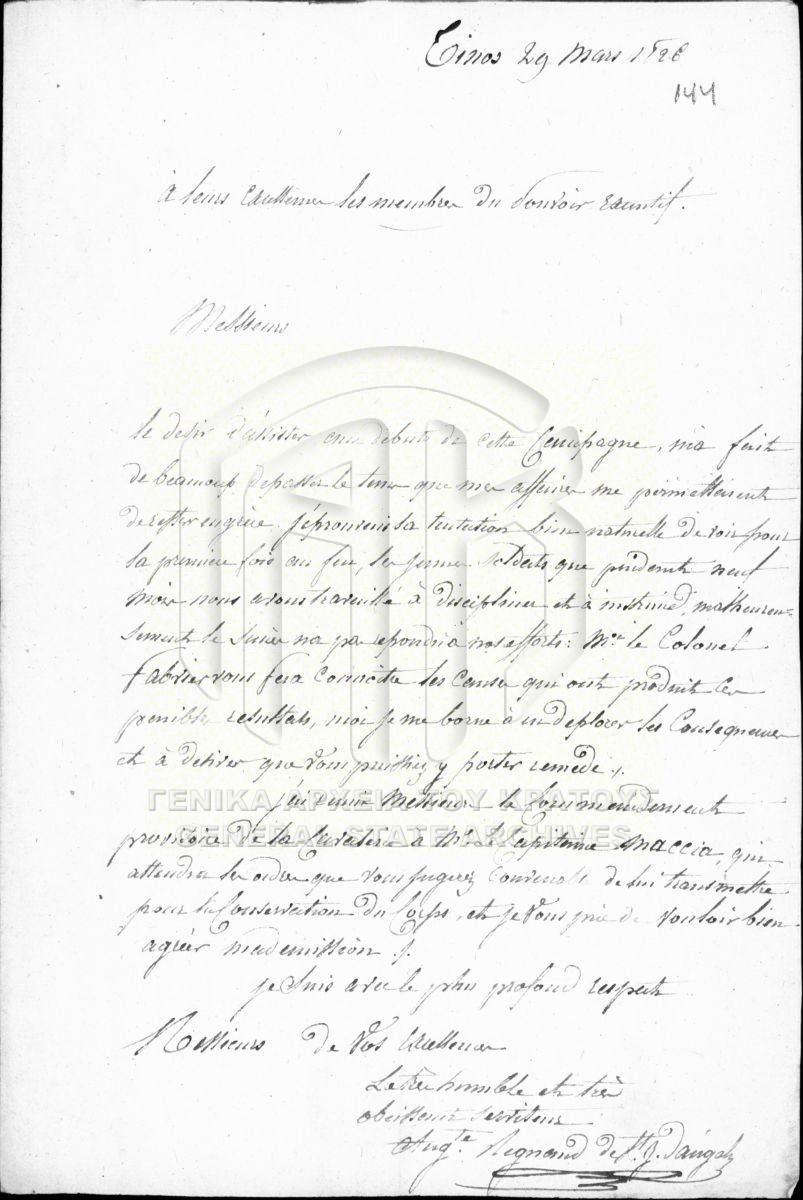 Tinos 29 Mars 1826
144
à leurs Excellences les membres du Pouvoir Executif.
Messieurs
le desir d'assister aux debuts de cette Campagne, m'a fait
de beaucoup depasser le tems que mes affaires me permettaient
de rester en grèce. J'éprouvais la tentation bien naturelle de voir pour
la premiere fois au feu, les jeunes soldats que pendant neuf
mois nous avons travaillé à discipliner et à instruire, malheureu=
sement le succès n'a pas repondu à nos efforts: Mr. le Colonel
Fabvier vous fera connoitre les causes qui ont produit ces
penibles resultats, moi je me borne à en deplorer les Consequences
et à desirer que vous puissiez y porter remede ./.
J'ai donné Messieurs le Commandement
provisoire de la Cavalerie à Mr. le Capitaine Maccia, qui
attendra les ordres que vous jugerez convenable de lui transmettre
pour la Conservation du Corps, et je vous prie de vouloir bien
agréer ma demission ./.
je suis avec le plus profond respect
Messieurs de Vos Excellences
Le très humble et très
obeissant serviteur
Augte. Regnaud de St. J. d'angely
ΓΕΝΙΚΑ ΑΡΧΕΙΑ ΤΟΥ ΚΡΑΤΟΥΣ
GENERAL STATE ARCHIVES